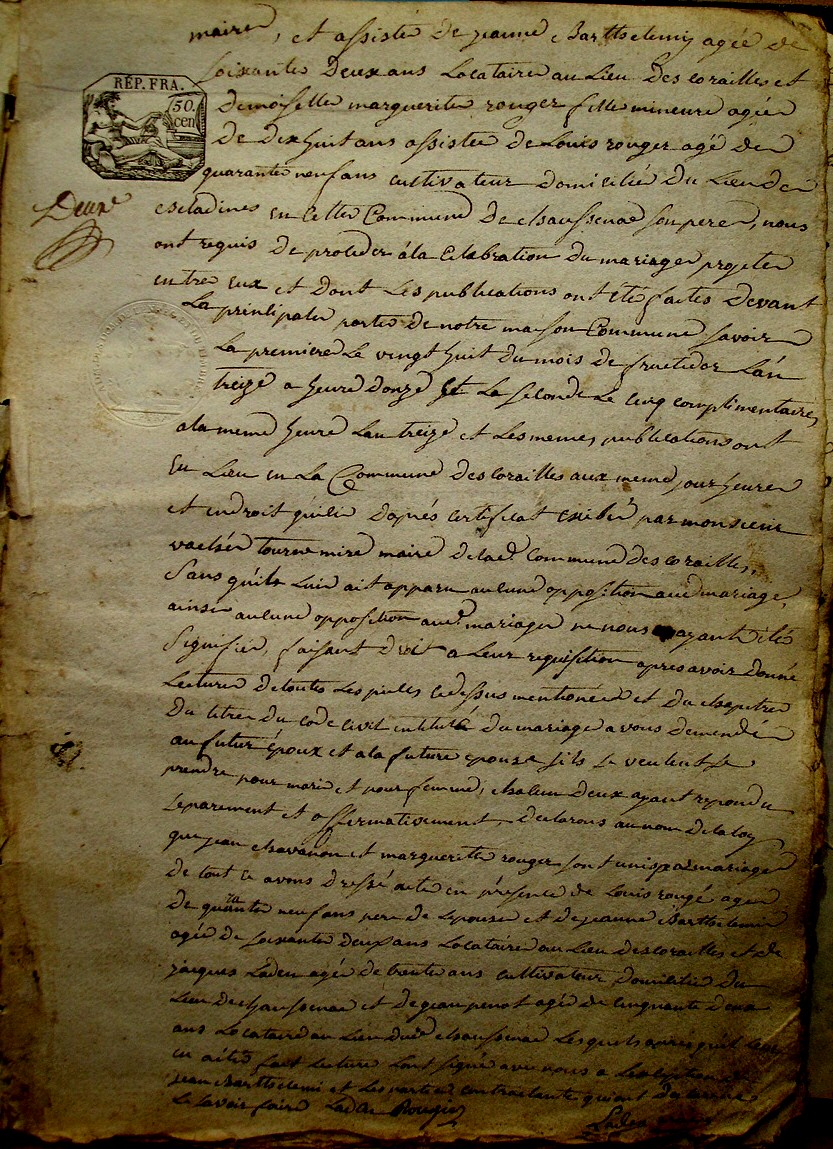 maire, et assisté de jeanne Barthelemy agée de
RÉP. FRA.
50. cen
soixante deux ans Locataire au Lieu des corailles et
demoiselle marguerite rouger fille mineure agée
de dix huit ans assistée de Louis rouger agé de
quarante neuf ans cultivateur domicilié du Lieu de
Deux.e
en cette Commune de chaussenac son pere, nous
ont requis de proceder à la celebration du mariage projeté
entre eux et dont Les publications ont été faites devant
La principale porte de notre maison Commune savoir
La premiere Le vingt huit du mois de fructidor L'an
treize a heure d'onze et La seconde Le cinq complimentaire,
a la meme heure L'an treize et Les memes publications ont
eu Lieu en La Commune des corailles aux meme jour heure
et endroit d'aprés certificat exibé par monsieur
tournemire maire de lad.e Commune des corailles,
Sans qu'ils ait apparu aucune opposition aud mariage,
ainsi aucune opposition aud.t mariage ne nous ayant été
Signifiée, faisant droit a Leur requisition apres avoir donné
Lecture de toutes Les pieces cy dessus mentionées et du chapitre
du titre du code civil intitulé du mariage avons demendé
au futur époux et a la future epouse s'ils se veulent
prendre pour mari et pour femme, chacun d'eux ayant repondu
separement et affermativement, declarons au nom de la loy
que jean chavanon et marguerite rouger sont unis par mariage
de tout ce avons dressé acte en présence de Louis rougé agé
de quarante neuf ans pere de l'epouse et de jeanne Barthelemi
agée de soixante deux ans Locataire au Lieu des corailles et de
jacques Laden agé de trente ans cultivateur domicilié du
Lieu de chaussenac et de jean penot agé de cinquante deux
ans Locataire au Lieu dud.t chaussenac Lesquels aprés qu'il Leur
en a été fait Lecture L'ont signé avec nous a L'exception de
jean Barthelemi et Les parties contractante qui ont declaré
ne Le savoir faire Laden Rougier
Laden